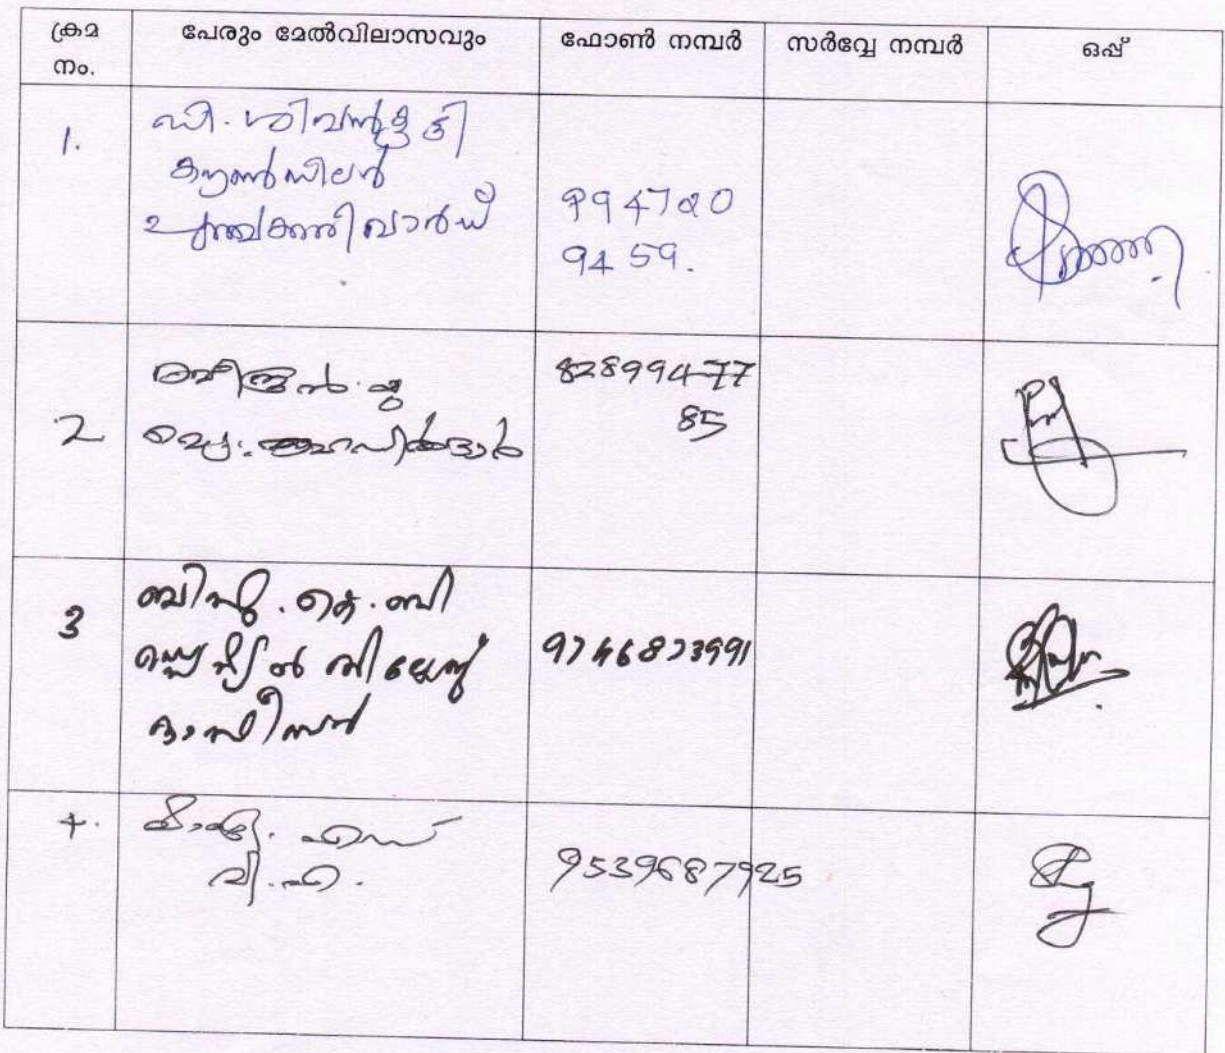 ക്രമ നം. പേരും മേൽവിലാസവും ഫോൺ നമ്പർ സർവ്വേ നമ്പർ ഒപ്പ്
1. ഡി. ശിവൻകുട്ടി
കൗൺസിലർ
പുഞ്ചക്കരി വാർഡ്
994720
9459.
2
82899477
85
3 ബിന്ദു. ഐ. ബി
സ്പെഷ്യൽ വില്ലേജ്
ഓഫീസർ
9746873991
4. എസ്
വി. എ.
9539687925